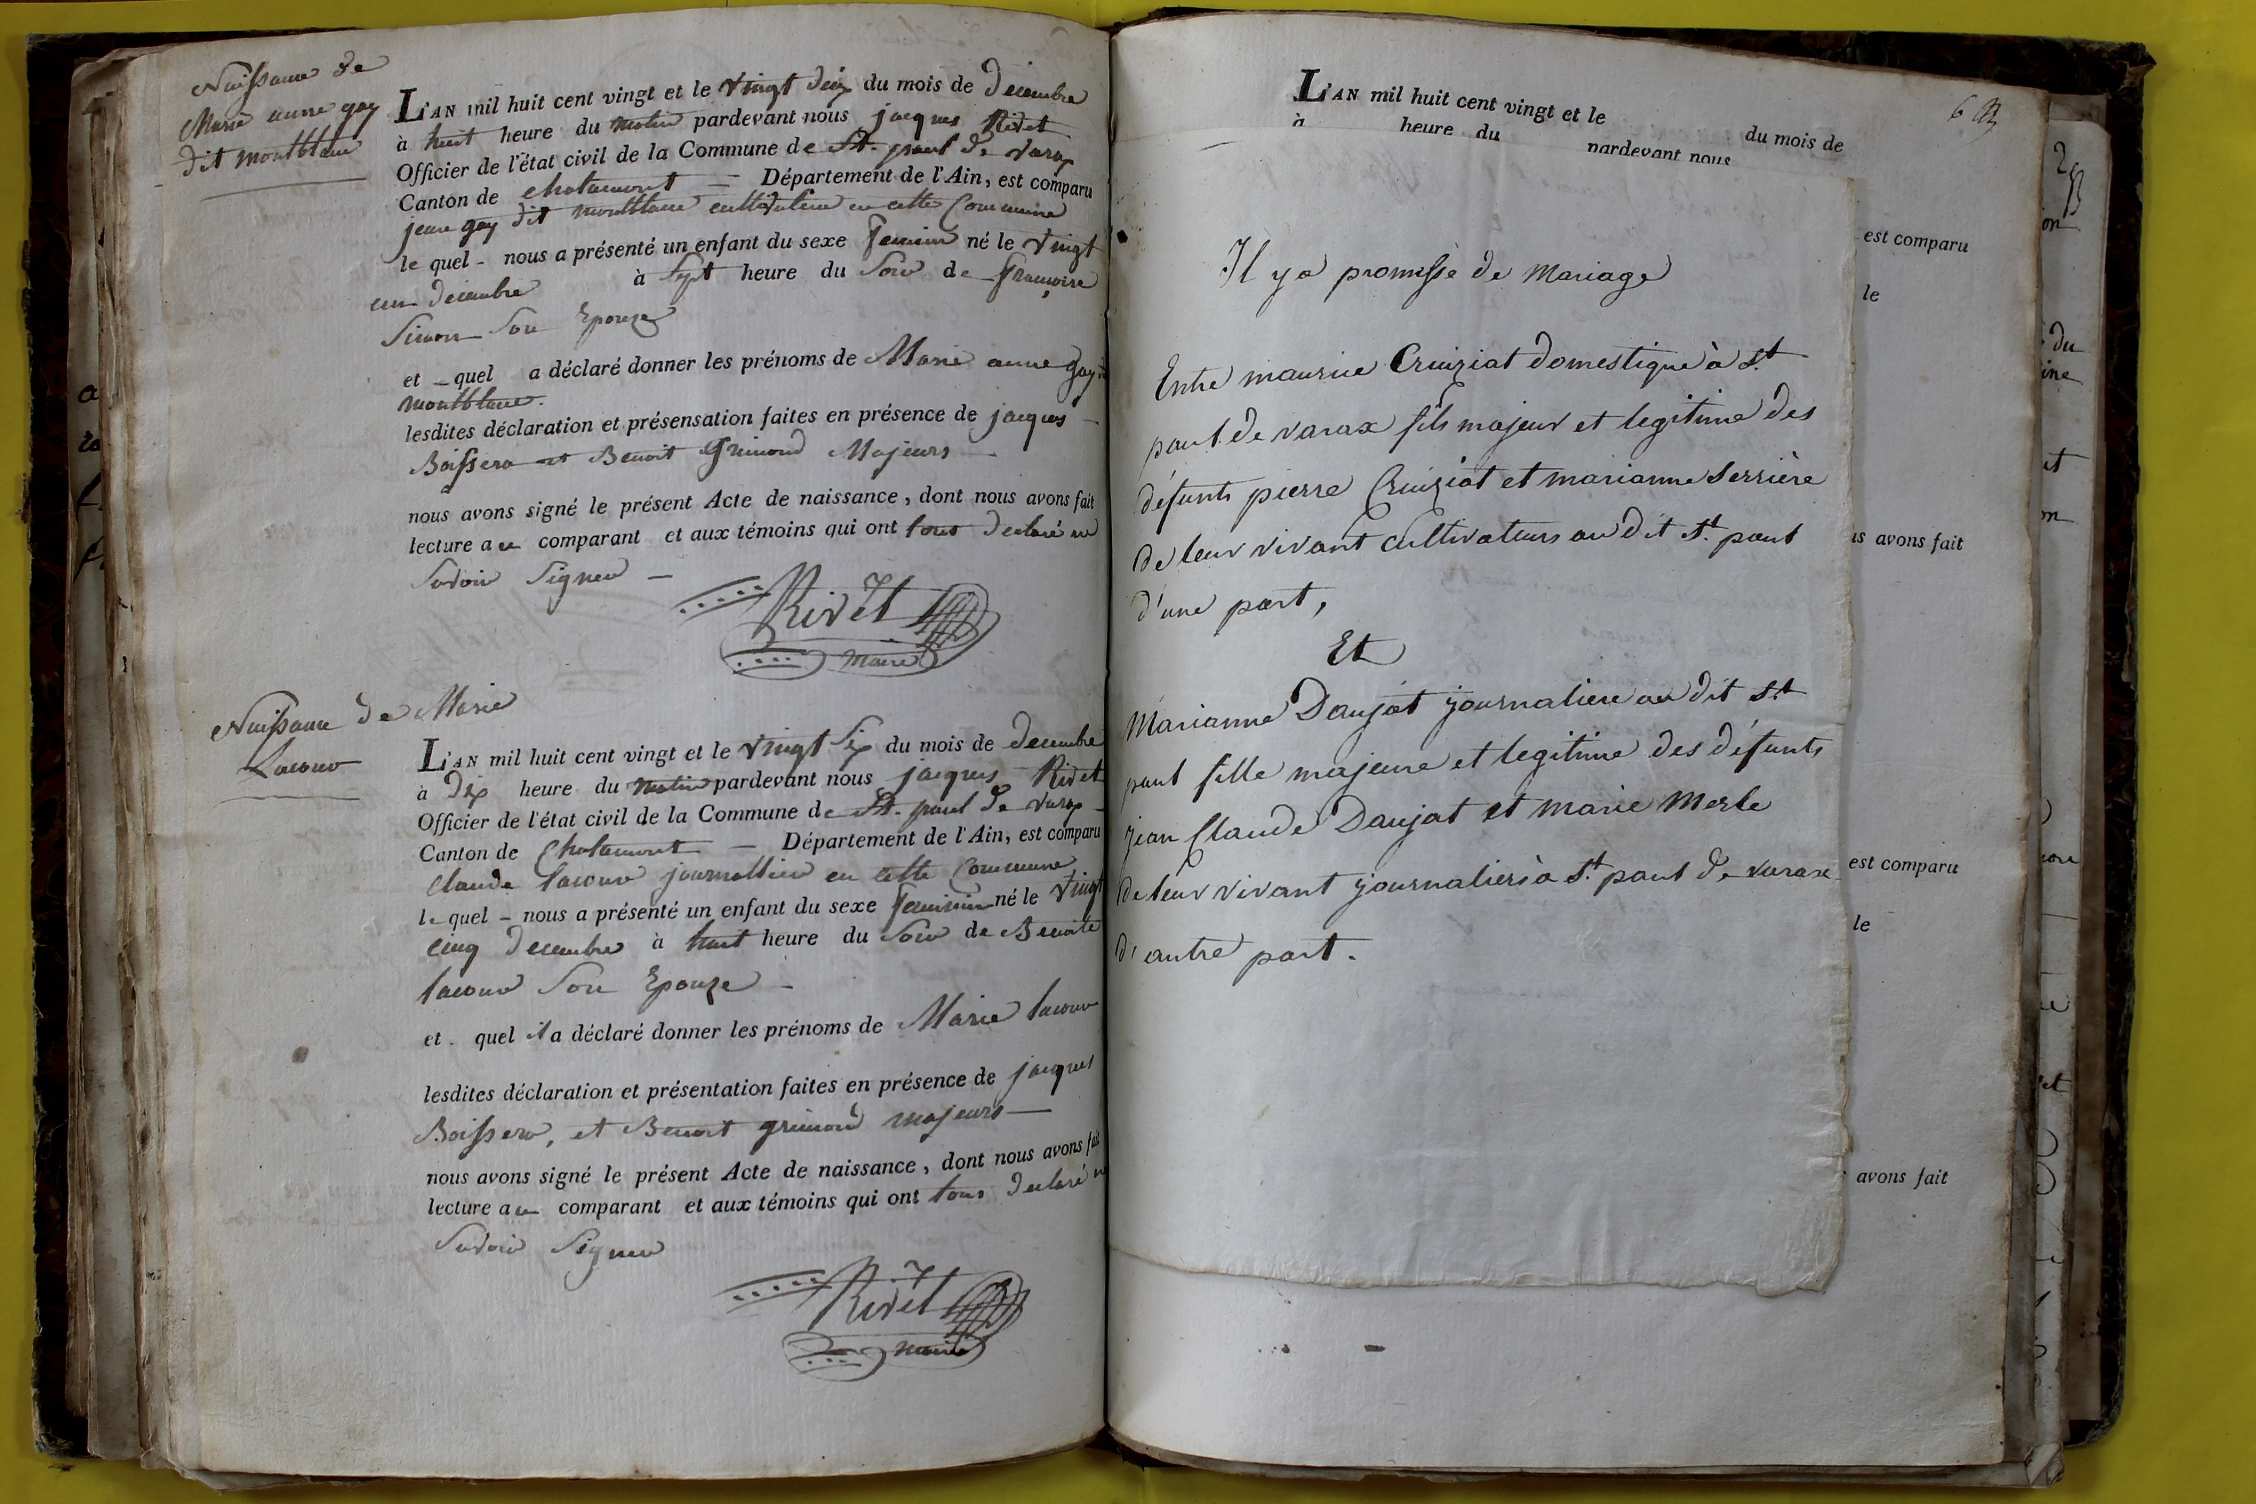 Naissance de
Marie anne gay
dit montblanc
L'AN mil huit cent vingt et le vingt deux du mois de décembre
à huit heure du matin pardevant nous jacques Rivet
Officier de l'état civil de la Commune de St. paul de varax
Canton de chatamont — Département de l'Ain, est comparu
jean gay dit montblanc cultivateur en cette Commune
le quel - nous a présenté un enfant du sexe feminin né le vingt
un décembre à Sept heure du Soir de françoise
Simon Son Epouze
et - quel a déclaré donner les prénoms de Marie anne gay
montblanc.
lesdites déclaration et présensation faites en présence de jacques -
Boissero et Benoit Grimond Majeurs —
nous avons signé le présent Acte de naissance, dont nous avons fait
lecture au comparant et aux témoins qui ont tous declaré ne
Savoir Signer —
Rivet
maire
Naissance de Marie
Lacour
L'AN mil huit cent vingt et le vingt Six du mois de decembre
à dix heure du matin pardevant nous jacques Rivet
Officier de l'état civil de la Commune de St. paul de varax -
Canton de Chatamont — Département de l'Ain, est comparu
Claude lacour journallier en cette Commune
le quel - nous a présenté un enfant du sexe feminin né le Vingt
cinq decembre à huit heure du Soir de Benoite
lacour Son Epouze -
et . quel il a déclaré donner les prénoms de Marie lacour
lesdites déclaration et présentation faites en présence de jacques
Boissero, et Benoit grimond majeurs —
nous avons signé le présent Acte de naissance, dont nous avons fait
lecture au comparant et aux témoins qui ont tous declaré ne
Savoir Signer
Rivet
maire
L'AN mil huit cent vingt et le du mois de
à heure du pardevant nous
est comparu
le
Il y a promesse de Mariage
Entre maurice Cruiziat domestique à St.
paul de varax fils majeur et legitime des
défunts pierre Cruiziat et marianne Serrière
de leur vivant Cultivateurs au dit St. paul
d'une part,
Et
Marianne Daujat journaliere au dit St.
paul fille majeure et legitime des défunts
jean Claude Daujat et marie Merle
de leur vivant journaliers à St. paul de varax
d'autre part.
us avons fait
est comparu
le
avons fait